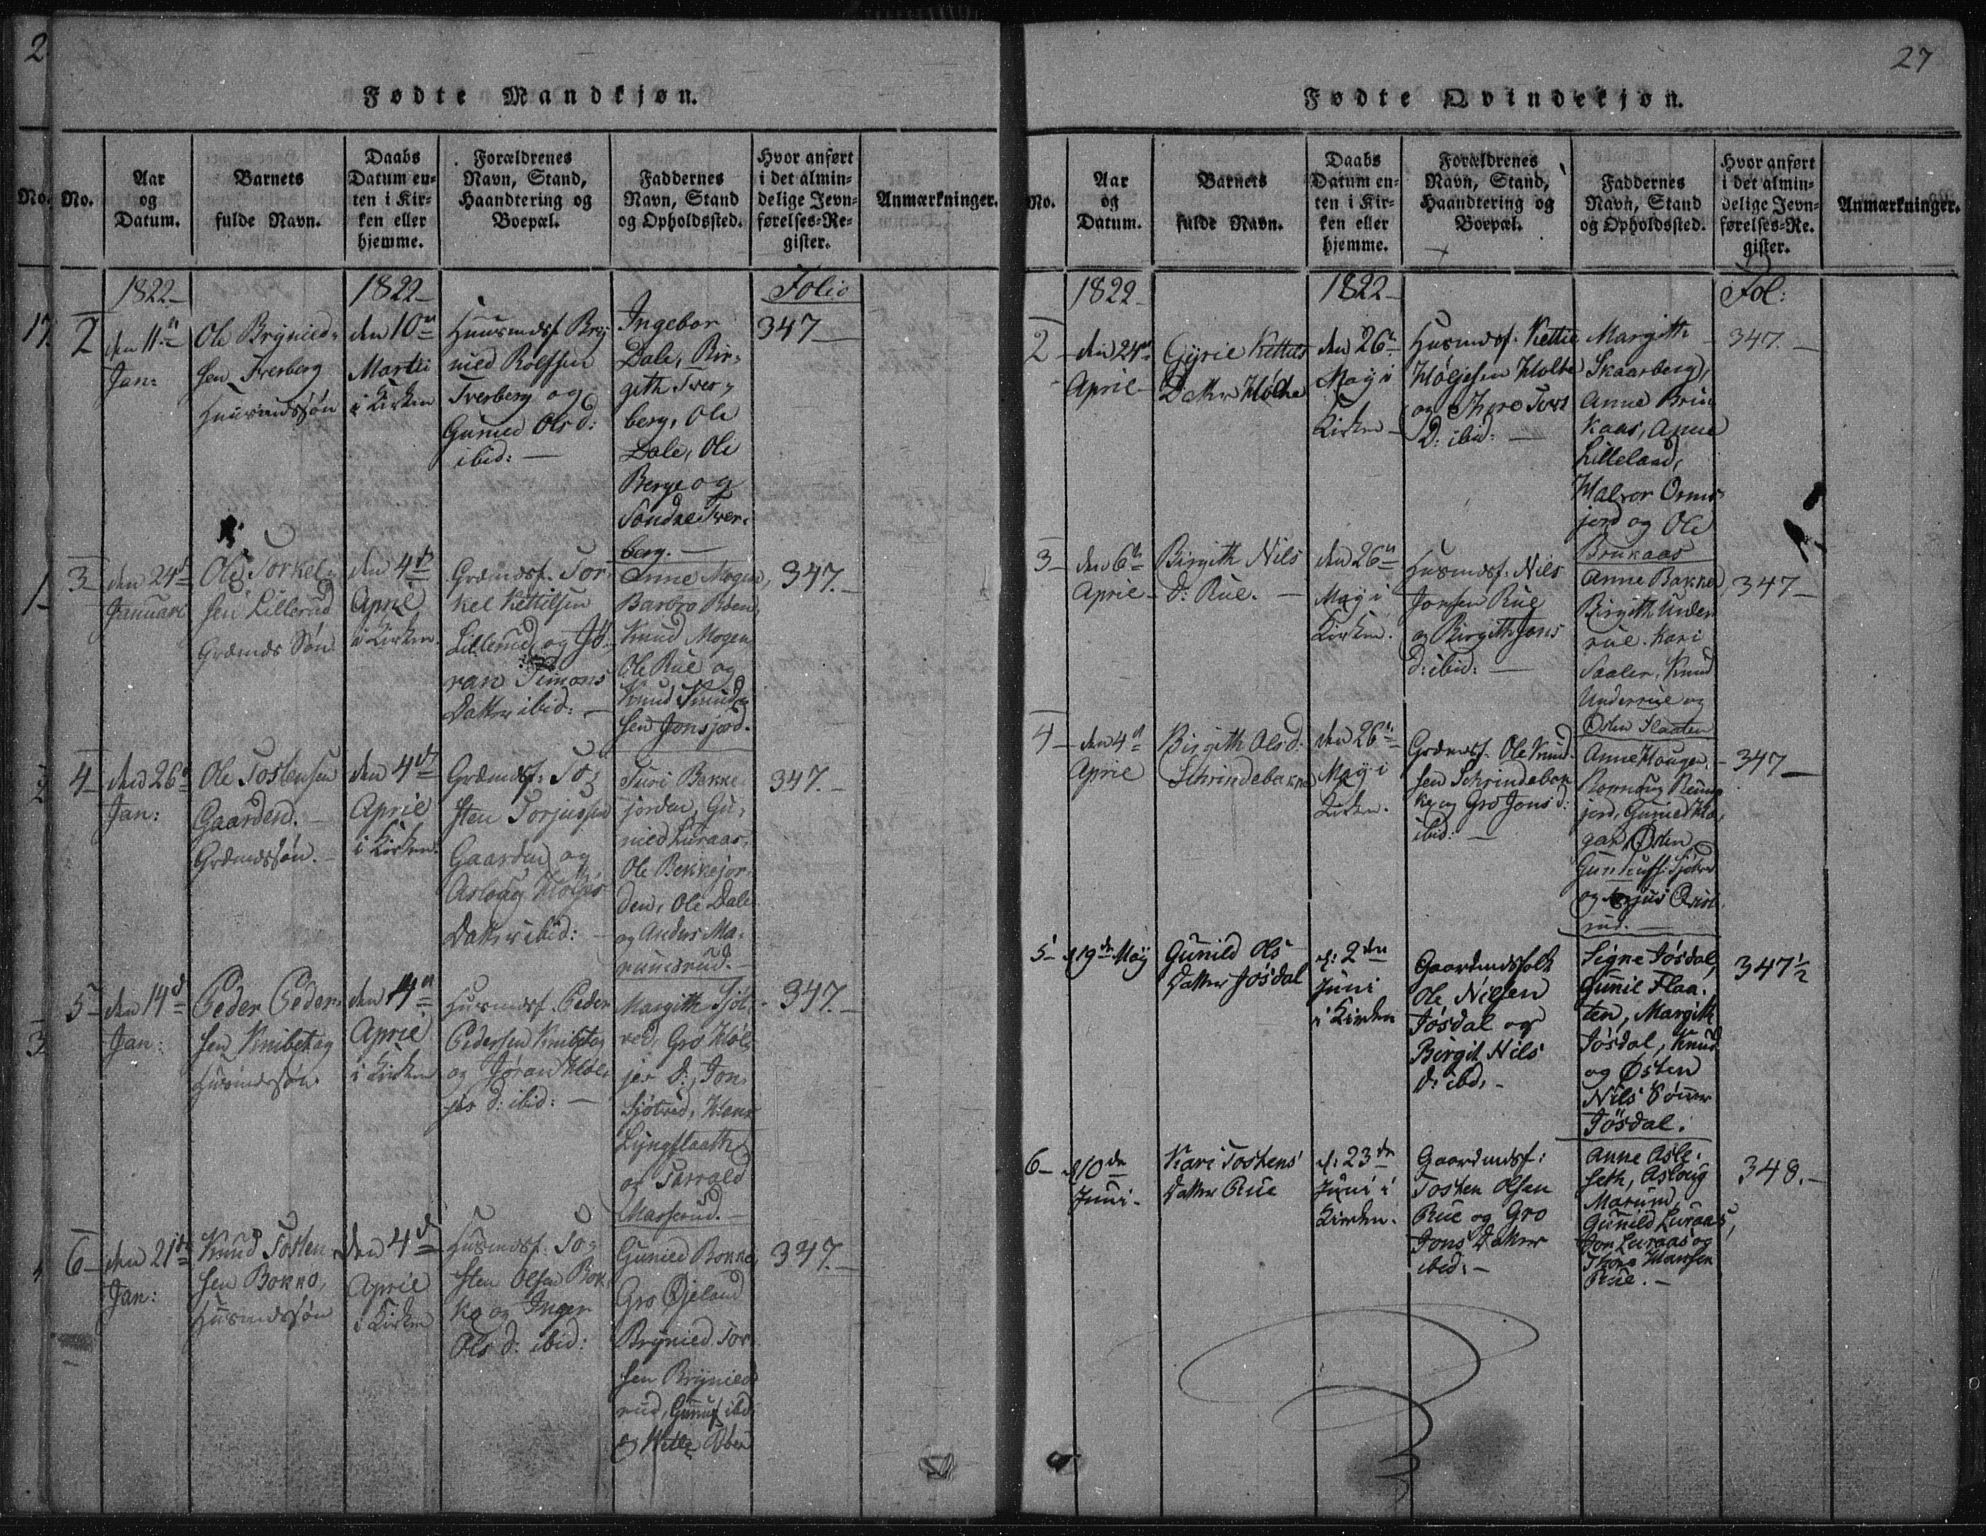 2
27
Fødte Mandkjøn.
No.
No.
Aar
og
Datum.
Barnets
fulde Navn.
Daabs
Datum en-
ten i Kir-
ken eller
hjemme.
Forældrenes
Navn, Stand,
Haandtering og
Boepæl.
Faddernes
Navn, Stand
og Opholdssted.
Hvor anført
i det almin-
delige Jevn-
førelses-Re-
gister.
Anmærkninger.
17.
1822
1822
Folio
2
den 11te
Jan:
Ole Brynild-
sen Tverberg
Huusmdssøn
den 10de
Martii
i Kirken
Huusmdsf. Bry
nild Rolfsen
Tverberg og
Gunild Ols d:
ibid:
Ingebor
Dale, Bir-
gith Tver-
berg, Ole
Dale, Ole
Berge og
Søndre Tver-
berg.
347
3
den 24d
Januari
Ole Torkel-
sen Lillerud
Grdmds Søn
den 4d
April
i Kirken
Grdmdsf. Tor-
kel Kettilsen
Lillerud og Jø-
ran Simons
Datter ibid:
Anne Mogen,
Barbro Bøen,
Knud Mogen,
Ole Rue og
Knud Knud-
sen Jonsjord.
347.
4
den 26d
Jan:
Ole Tostensen
Gaarden.
Grdmdssøn.
den 4d
April
i Kirken.
Grdmdsf: To-
sten Torjussen
Gaarden og
Asloug Holjes
Datter ibid:
Turi Bakke-
jorden, Gu-
nild Luraas,
Ole Bekkejor-
den, Ole Dale
og Anders Ma-
rumsrud.
347.
5
den 14d
Jan:
Peder Peder-
sen Knibetag
Husmdssøn.
den 4d
April
i Kirken
Husmdsf. Peder
Pedersen Knibetag
og Jøran Hol-
jes d: ibid:
Margith Sjøt-
ved, Gro Hol-
jes d:, Jon
Sjøtved, Hans
Lyngflaath
og Tarrald
Masserud.
347.
6
den 21de
Jan:
Knud Tosten
sen Bokko,
Husmdssøn
den 4d
April
i Kirken
Husmdsf. To-
sten Olsen Bok
ko og Inger
Ols d: ibid:
Gunild Bokko,
Gro Øjeland
Brynild Tor
sen Brynild
rud, Gunuf ibd.
347.
Fødte Qvindekjøn.
No.
Aar
og
Datum.
Barnets
fulde Navn.
Daabs
Datum en-
ten i Kir-
ken eller
hjemme.
Forældrenes
Navn, Stand,
Haandtering og
Boepæl.
Faddernes
Navn, Stand
og Opholdssted.
Hvor anført
i det almin-
delige Jevn-
førelses-Re-
gister.
Anmærkninger.
1822
1822
Fol:
2
den 24d
April
Gyrie Kettils
Datter Holte
den 26d
May i
Kirken
Husmdsf. Kettil
Høljesen Holte
og Thore Tors
D: ibid:
Margith
Skaarberg,
Anne Bru
kaas, Anne
Lilleland,
Halvor Orms-
jord og Ole
Brukaas
347.
3
den 6d
April
Birgith Nils
d: Rue.
den 26d
May i
Kirken.
Husmdsf: Nils
Jonsen Rue
og Birgith Jons
d: ibid:
Anne Bakke,
Birgith Under
rue, Kari
Saaler, Knud
Underrue og
Østen Flaaten
347
4
den 4d
April
Birgith Ols d:
Schrindebakke
den 26d
May i
Kirken.
Grdmdsf. Ole Knud
sen Schrindebak
ke og Gro Jons d:
ibid:
Anne Haugen,
347
5
d 19de May
Gunild Ols
Datter Jøsdal
d: 2den
Juni
i Kirken
Gaardmdsfolk
Ole Nilsen
Jøsdal og
Birgit Nils
d: ibd.
Signe Jøsdal,
Gunil Flaa-
ten, Margith
Jøsdal, Knud
og Østen
Nils Sønner
Jøsdal.
347½
6
d 10de
Juni
Kari Tostens
Datter Rue
d: 23de
Juni i
Kirken.
Gaardmdsf:
Tosten Olsen
Rue og Gro
Jons Datter
ibid:
Anne Asle-
seth, Asloug
Marum,
Gunild Luraas,
Jon Luraas og
Thore Hansen
Rue.
348.